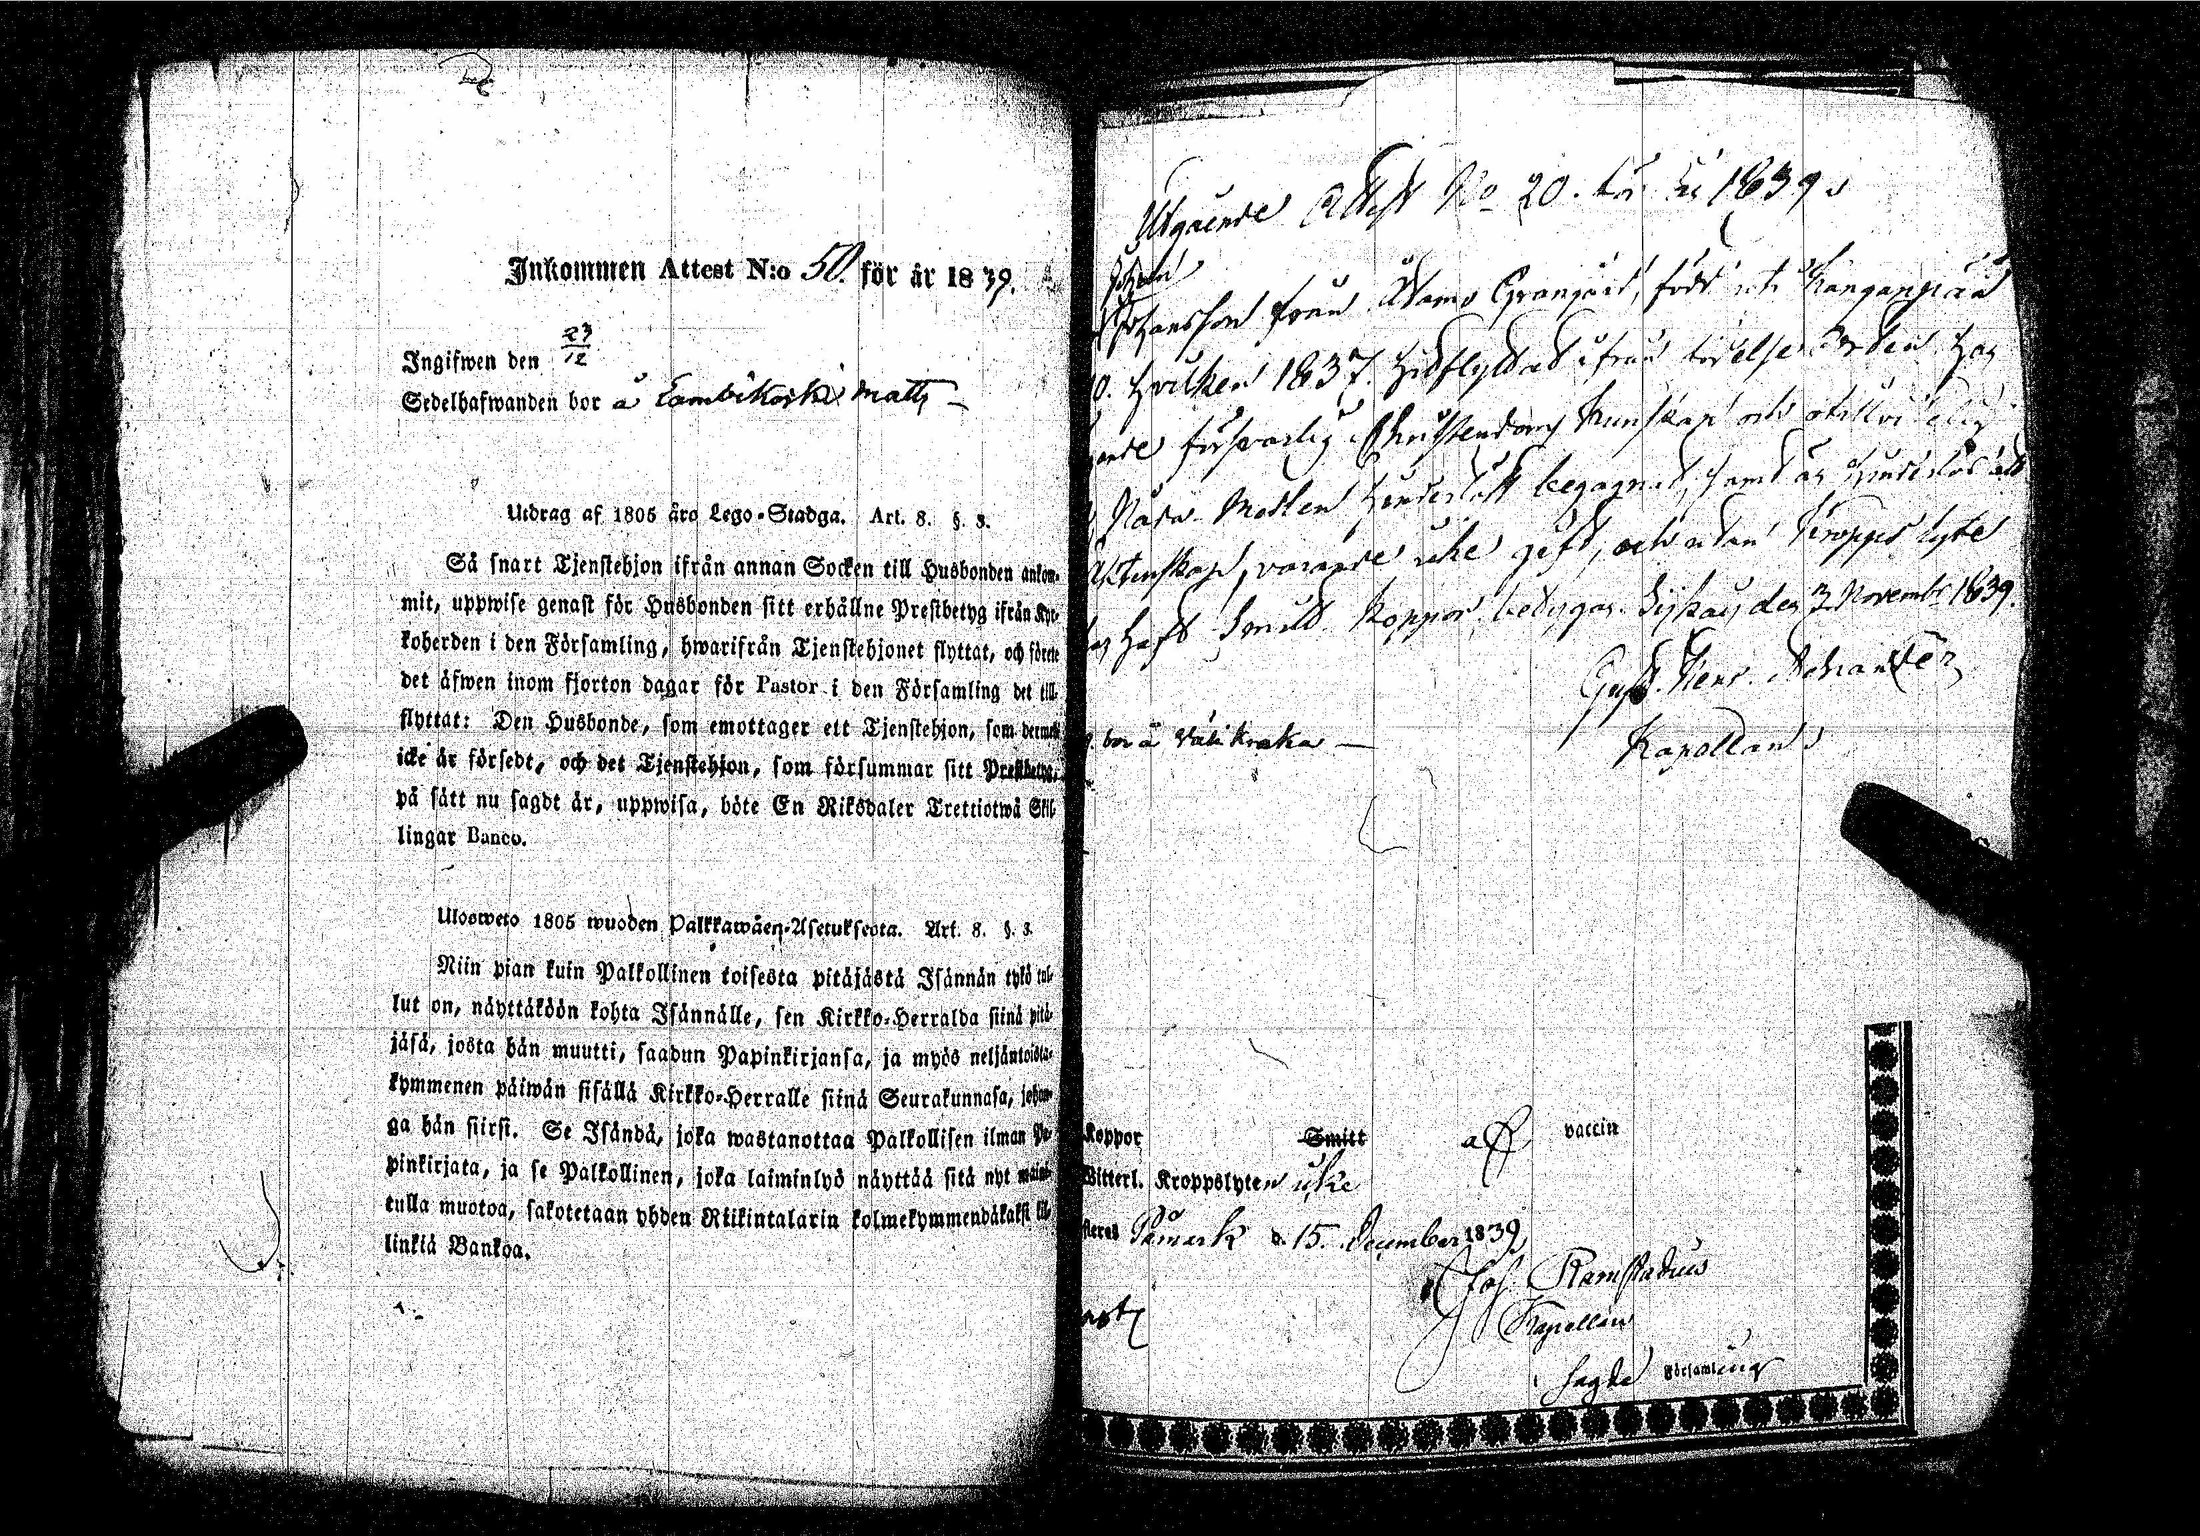 Inkommen Attest N:o 50. för år 1839.
Ingifwen den 23/12
Sedelhafwanden bor å Lambikoski Matts
Utdrag af 1805 års Lego-Stadga. Art. 8. §. 3.
Så snart Tjenstehjon ifrån annan Socken till Husbonden ankom-
mit, uppwise genast för Husbonden sitt erhållne Prestbetyg ifrån Kyr-
koherden i den Församling, hwarifrån Tjenstehjonet flyttat, och förete
det äfwen inom fjorton dagar för Pastor i den Församling det till-
flyttat: Den Husbonde, som emottager ett Tjenstehjon, som dermed
icke är försedt, och det Tjenstehjon, som försummar sitt Prestbetyg,
på sätt nu sagdt är, uppwisa, böte En Riksdaler Trettiotwå Skil-
lingar Banco.
Ulosweto 1805 wuoden Palkkawäen-Asetuksesta. Art. 8. §. 3.
Niin pian kuin Palkollinen toisesta pitäjästä Isännän tykö tul-
lut on, näyttäköön kohta Isännälle, sen Kirkko-Herralda siinä pitä-
jäsä, josta hän muutti, saadun Papinkirjansa, ja myös neljäntoista-
kymmenen päiwän sisällä Kirkko-Herralle siinä Seurakunnasa, johon-
ga hän siirsi. Se Isändä, joka wastanottaa Palkollisen ilman Pa-
pinkirjata, ja se Palkollinen, joka laiminlyö näyttää sitä nyt maini-
tulla muotoa, sakotetaan yhden Riikintalarin kolmekymmendäkaksi kil-
linkiä Bankoa.
Utgående Attest No 20. för år 1839.
Johansson från Adams Grangård, född uti Kanganpää
0. Hvilken 1837. hitflyttad ifrån födelse orten har
ande försvarlig Christendoms kunskap och
Nattvarden begagnat, samt är hinderlös till
Äktenskap, varande icke gift, och utan kroppslyte
har haft Smitt koppor, betygar. den 7 Novembr 1839.
Gust. Henr.
Kapellan
bor å Välikraka
koppor Smitt af vaccin
Witterl. Kroppslyten icke
steras Påmark d. 15. December 1839,
Joh. Ramstadius
Kapellan
Sagde Församling